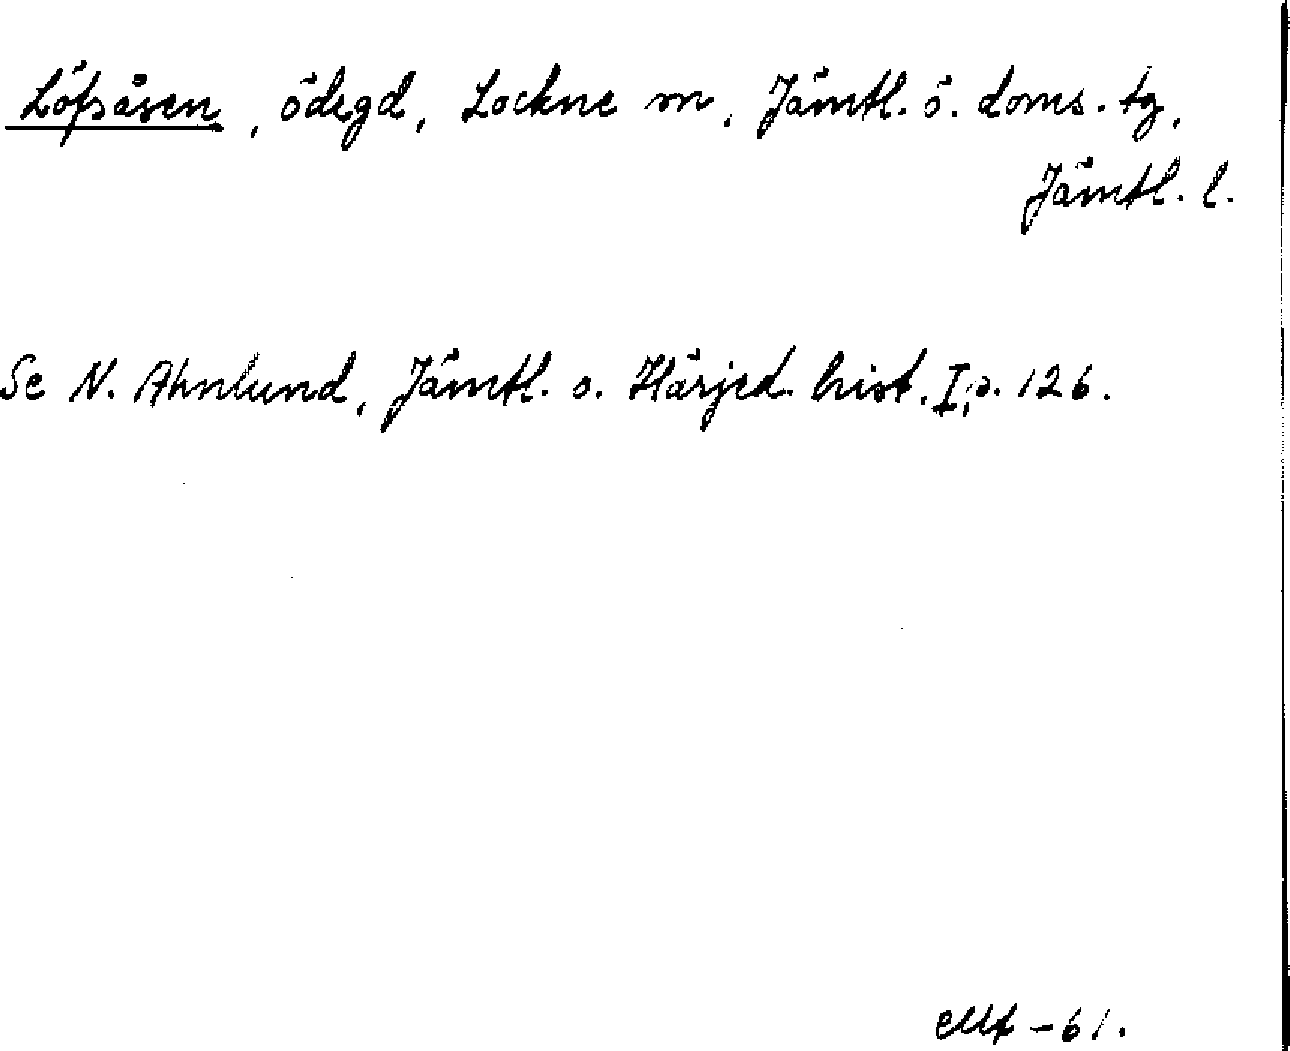 Löfsåsen, ödegd, Lockne sn, Jämtl. ö. doms. tg,
Jämtl. l.
Se N. Ahnlund, Jämtl. o. Härjed. hist. I, s. 126.
-61.